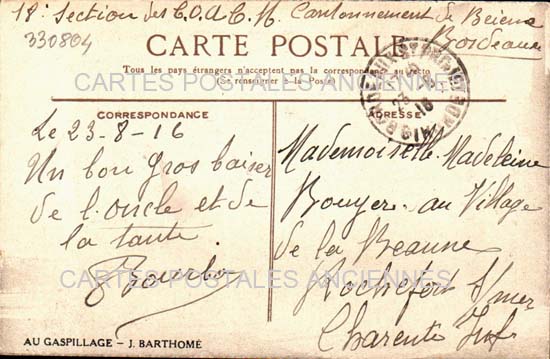 18e Section des C.O.A. C.M. Cantonnement de
Bordeaux
330804
CARTE POSTALE
Tous les pays étrangers n'acceptent pas la correspondance au recto
(Se renseigner à la Poste)
CORRESPONDANCE
ADRESSE
Le 23-8-16
Un bon gros baiser
de l'oncle et de
la tante
Mademoiselle Madeleine
Bouyer au Village
de la Beaune
Rochefort s/mer
Charente Inf
CARTES POSTALES ANCIENNES
CARTES POSTALES ANCIENNES
AU GASPILLAGE – J. BARTHOMÉ